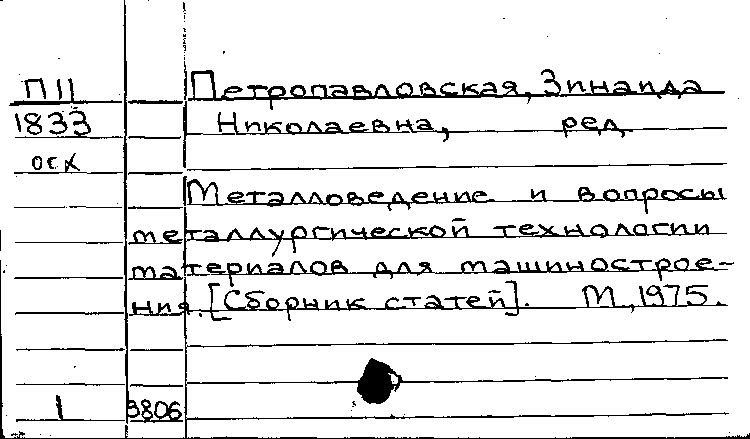 П11 Петропавловская, Зинаида
1833 Николаевна, ред.
осх
Металловедение и вопросы
металлургической технологии
материалов для машинострое-
ния. [Сборник статей]. М, 1975.
1 3806